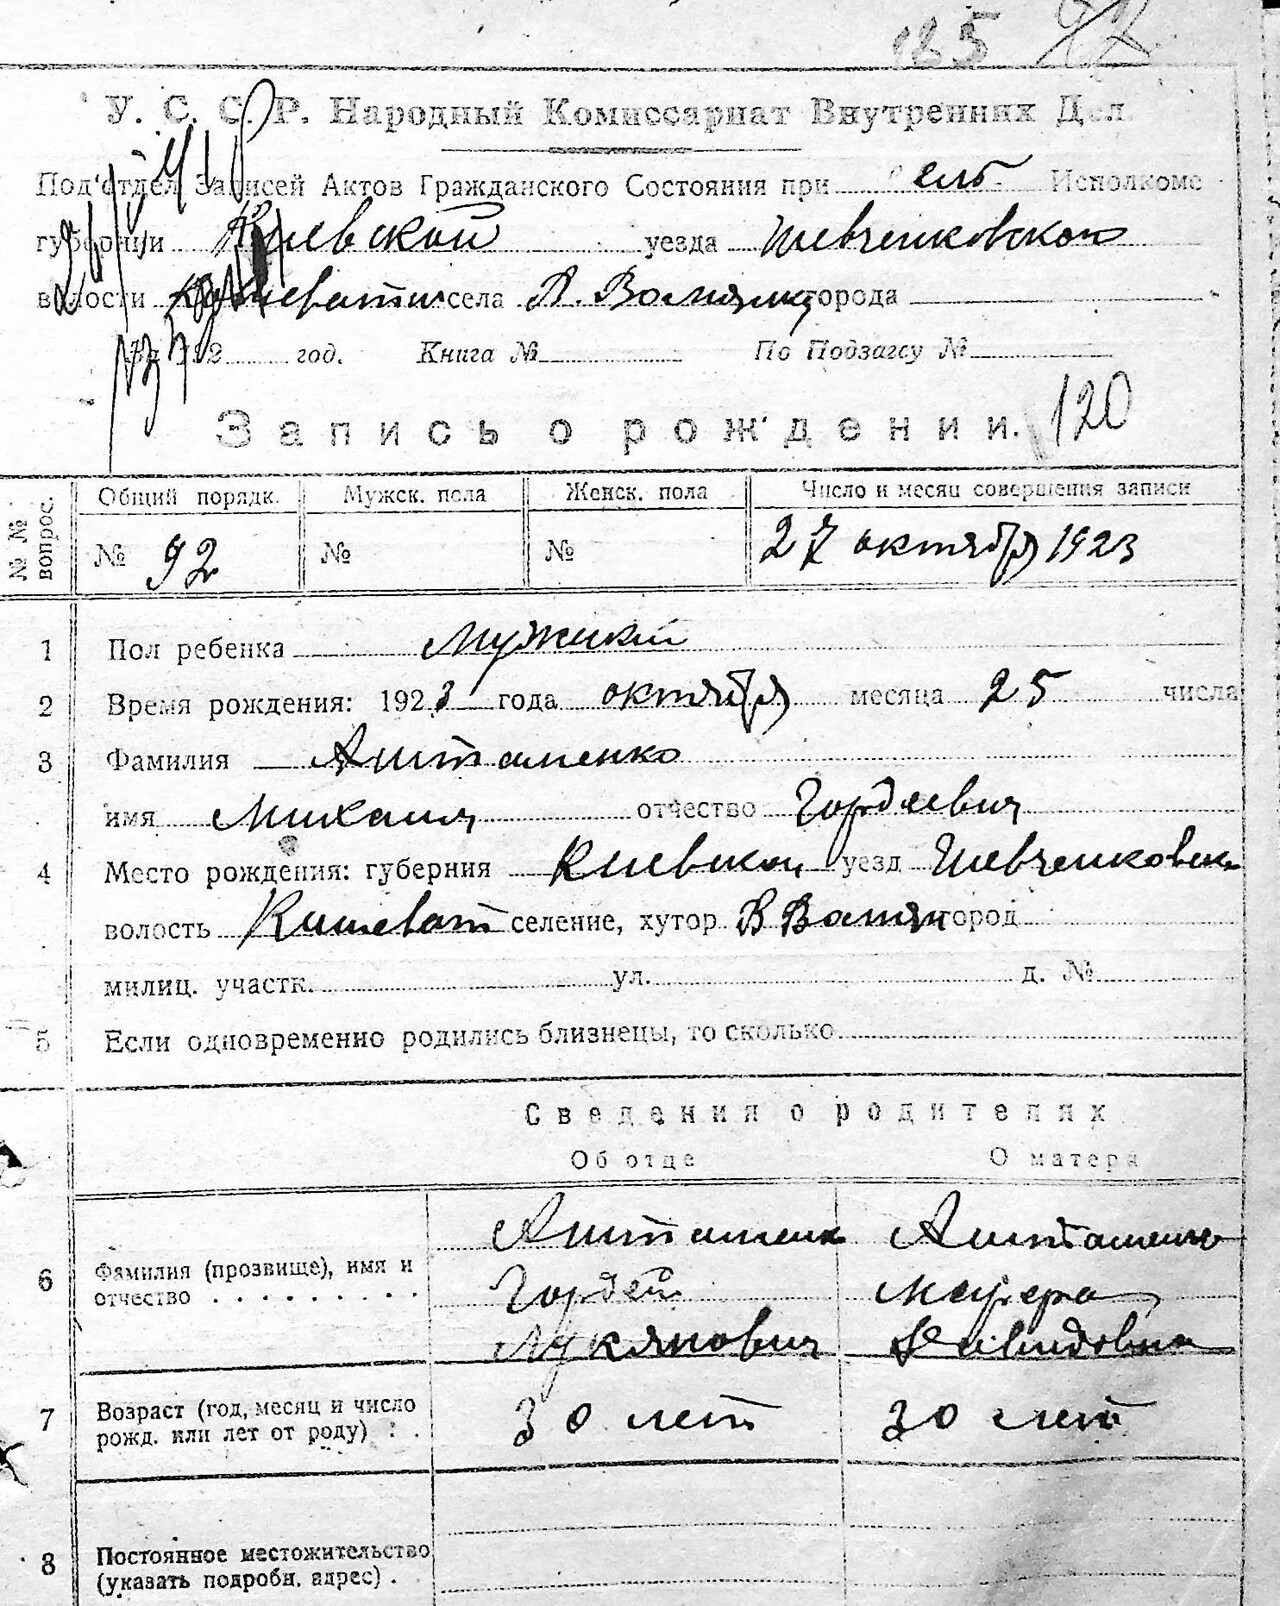 185
У. С. С. Р. Народный Комиссариат Внутренних Дел.
Под'отдел Записей Актов Гражданского Состояния при сель Исполкоме
губернии Киевской уезда Шевченковского
волости села В. города
192 год. Книга № По Подзагсу №
Запись о рождении. 120
№№ вопрос. Общий порядк. Мужск. пола Женск. пола Число и месяц совершения записи
№ 92 № № 27 октября 1923
1 Пол ребенка Мужский
2 Время рождения: 1923 года октября месяца 25 числа
3 Фамилия
имя Михаил отчество Гордеевич
4 Место рождения: губерния Киевской уезд Шевченковск
волость Кошеват селение, хутор В город
милиц. участк. ул. д. №
5 Если одновременно родились близнецы, то сколько
Сведения о родителях
Об отце О матери
6 Фамилия (прозвище), имя и отчество
Гордей
Лукянович Давидовна
7 Возраст (год, месяц и число рожд. или лет от роду) 30 лет 30 лет
8 Постоянное местожительство (указать подробн. адрес)